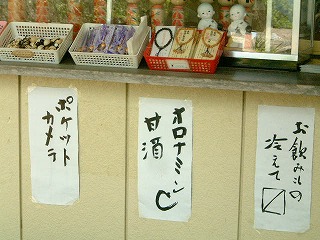 お飲みもの
冷えて〼
オロナミンC
甘酒
ポケット
カメラ